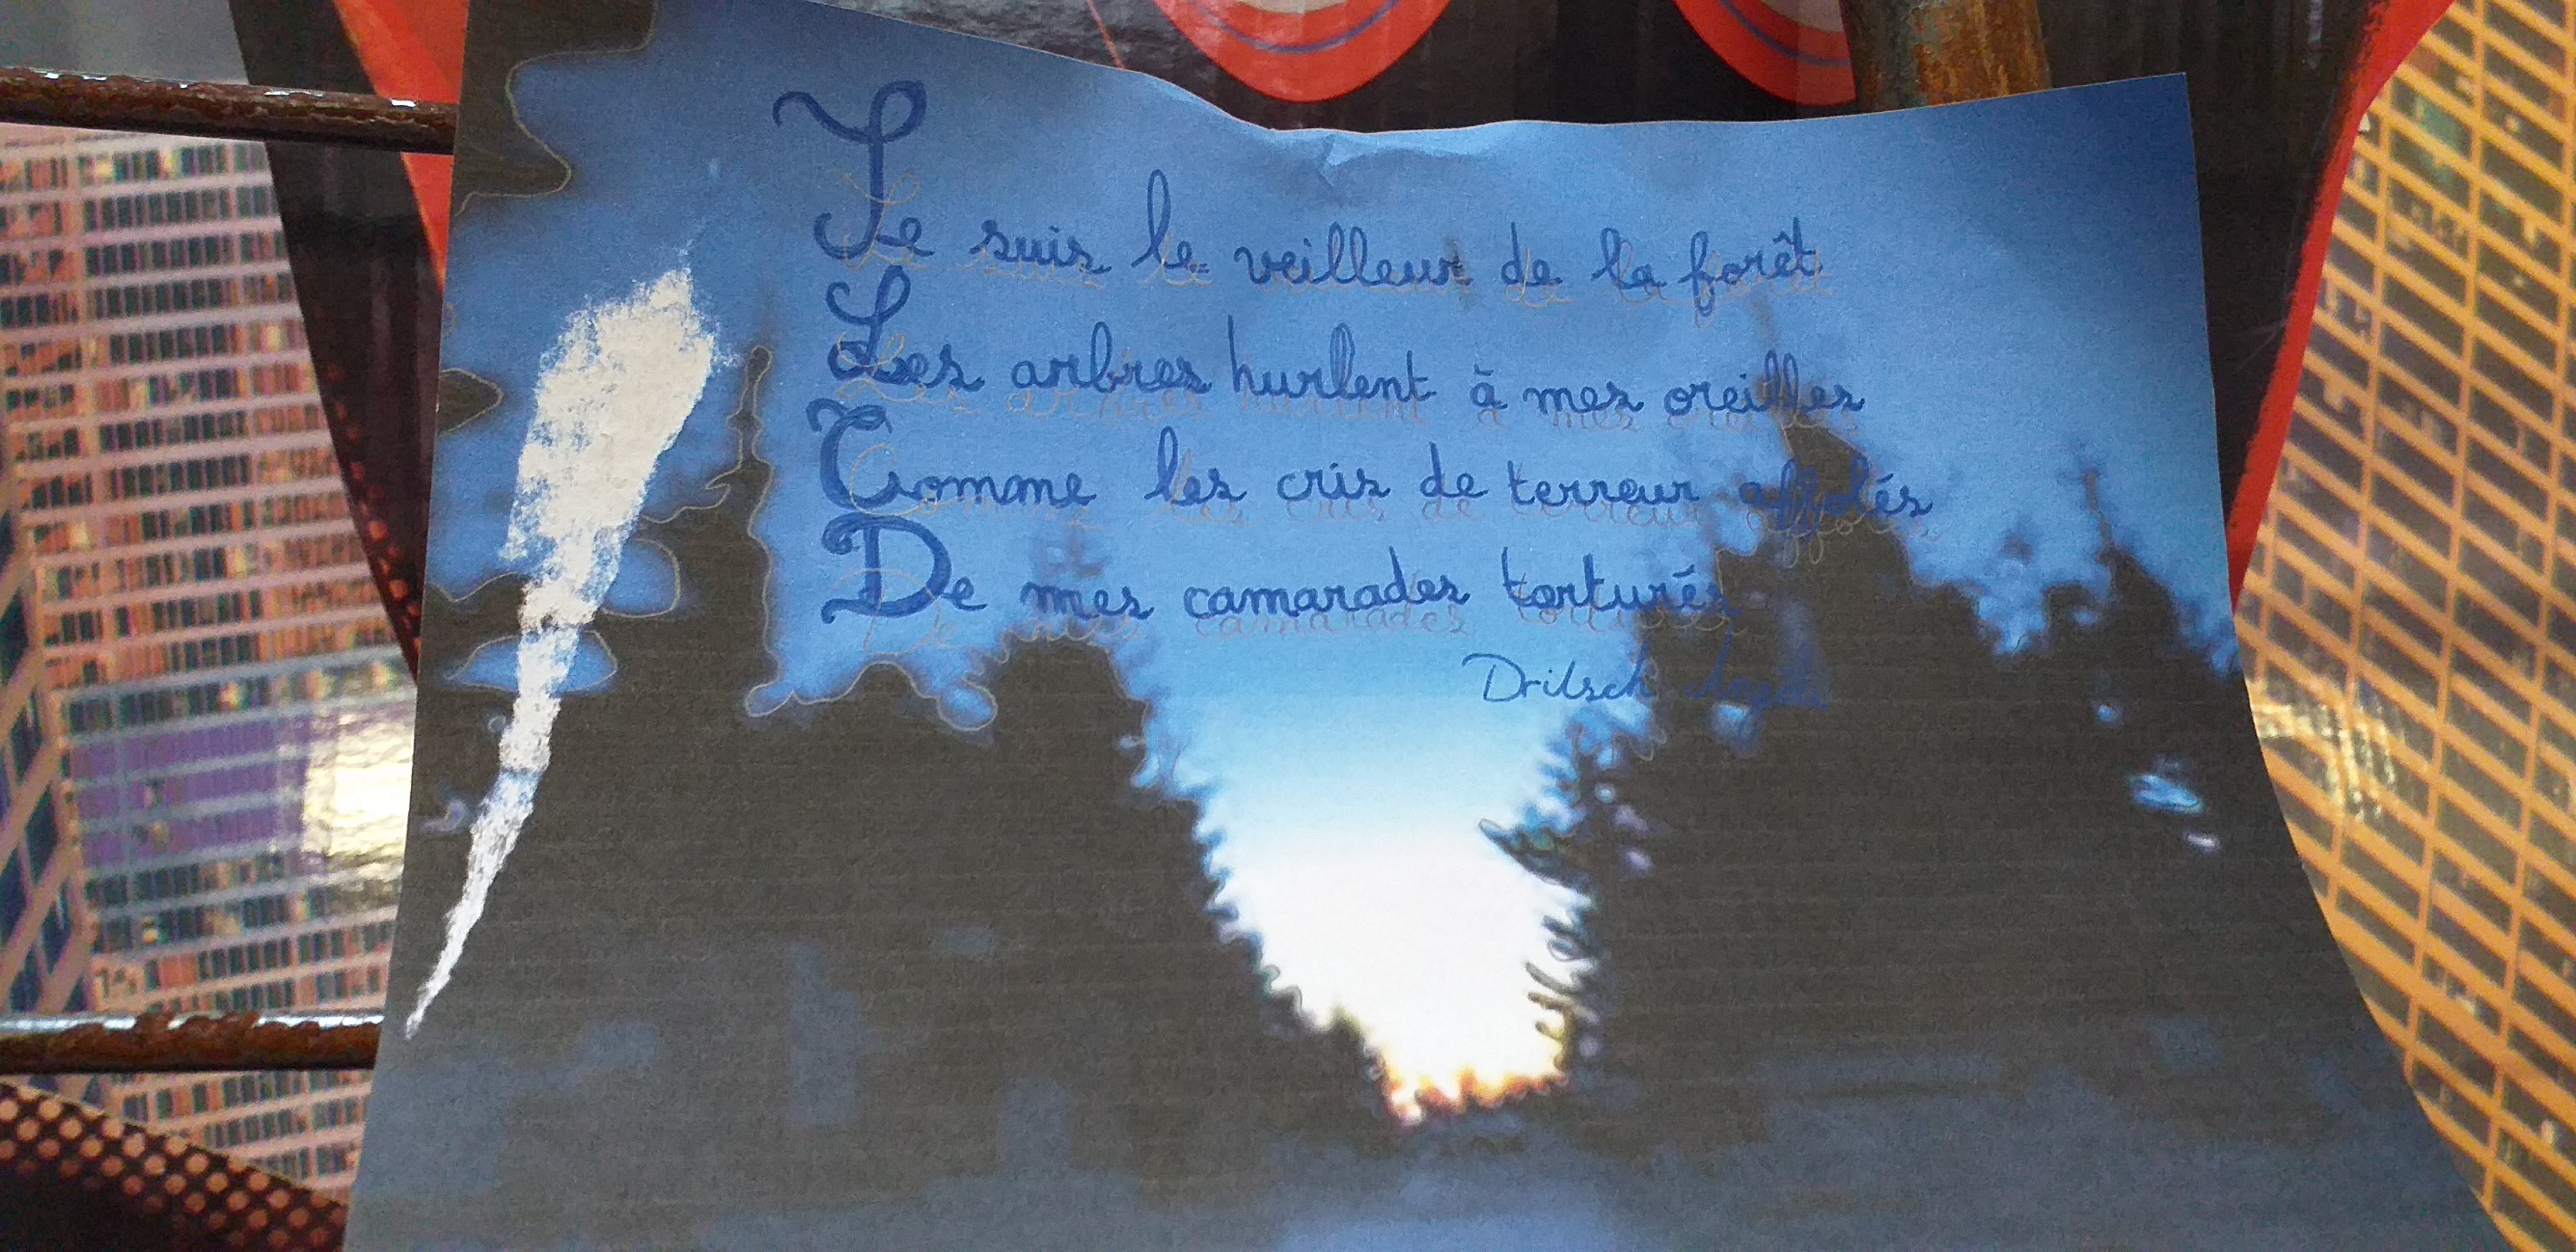 Je suis le veilleur de la forêt
Les arbres hurlent à mes oreilles
Comme les cris de terreur affolés
De mes camarades torturés
Dritsch